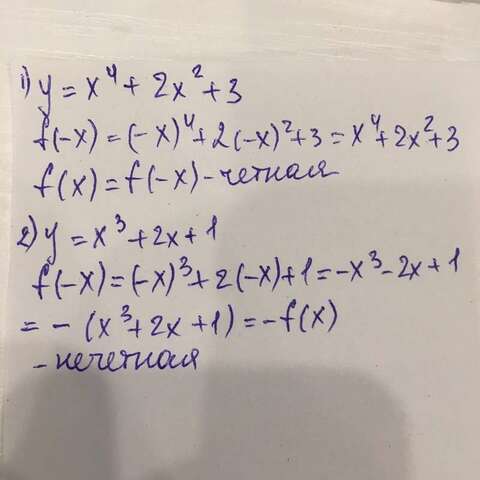 1) y = x⁴ + 2x² + 3
f(-x) = (-x)⁴ + 2(-x)² + 3 = x⁴ + 2x² + 3
f(x) = f(-x) - четная
2) y = x³ + 2x + 1
f(-x) = (-x)³ + 2(-x) + 1 = -x³ - 2x + 1
= - (x³ + 2x + 1) = -f(x)
- нечетная